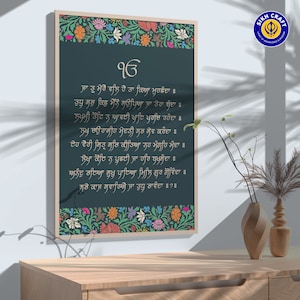 SIKH CRAFT
ੴ
ਜਾ ਤੂ ਮੇਰੈ ਵਲਿ ਹੈ ਤਾ ਕਿਆ ਮੁਹਛੰਦਾ ॥
ਤੁਧੁ ਸਭੁ ਕਿਛੁ ਮੈਨੋ ਸਉਪਿਆ ਜਾ ਤੇਰਾ ਬੰਦਾ ॥
ਲਖਮੀ ਤੋਟਿ ਨ ਆਵਈ ਖਾਇ ਖਰਚਿ ਰਹੰਦਾ ॥
ਲਖ ਚਉਰਾਸੀਹ ਮੇਦਨੀ ਸਭ ਸੇਵ ਕਰੰਦਾ ॥
ਏਹ ਵੈਰੀ ਮਿਤ੍ਰ ਸਭਿ ਕੀਤਿਆ ਨਹ ਮੰਗਹਿ ਮੰਦਾ ॥
ਲੇਖਾ ਕੋਇ ਨ ਪੁਛਈ ਜਾ ਹਰਿ ਬਖਸੰਦਾ ॥
ਅਨੰਦੁ ਭਇਆ ਸੁਖੁ ਪਾਇਆ ਮਿਲਿ ਗੁਰ ਗੋਵਿੰਦਾ ॥
ਸਭੇ ਕਾਜ ਸਵਾਰਿਐ ਜਾ ਤੁਧੁ ਭਾਵੰਦਾ ॥੭॥